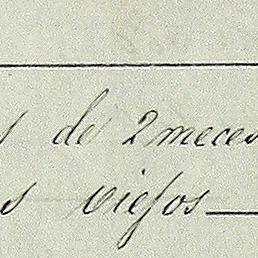 s de 2 meces
s viejos